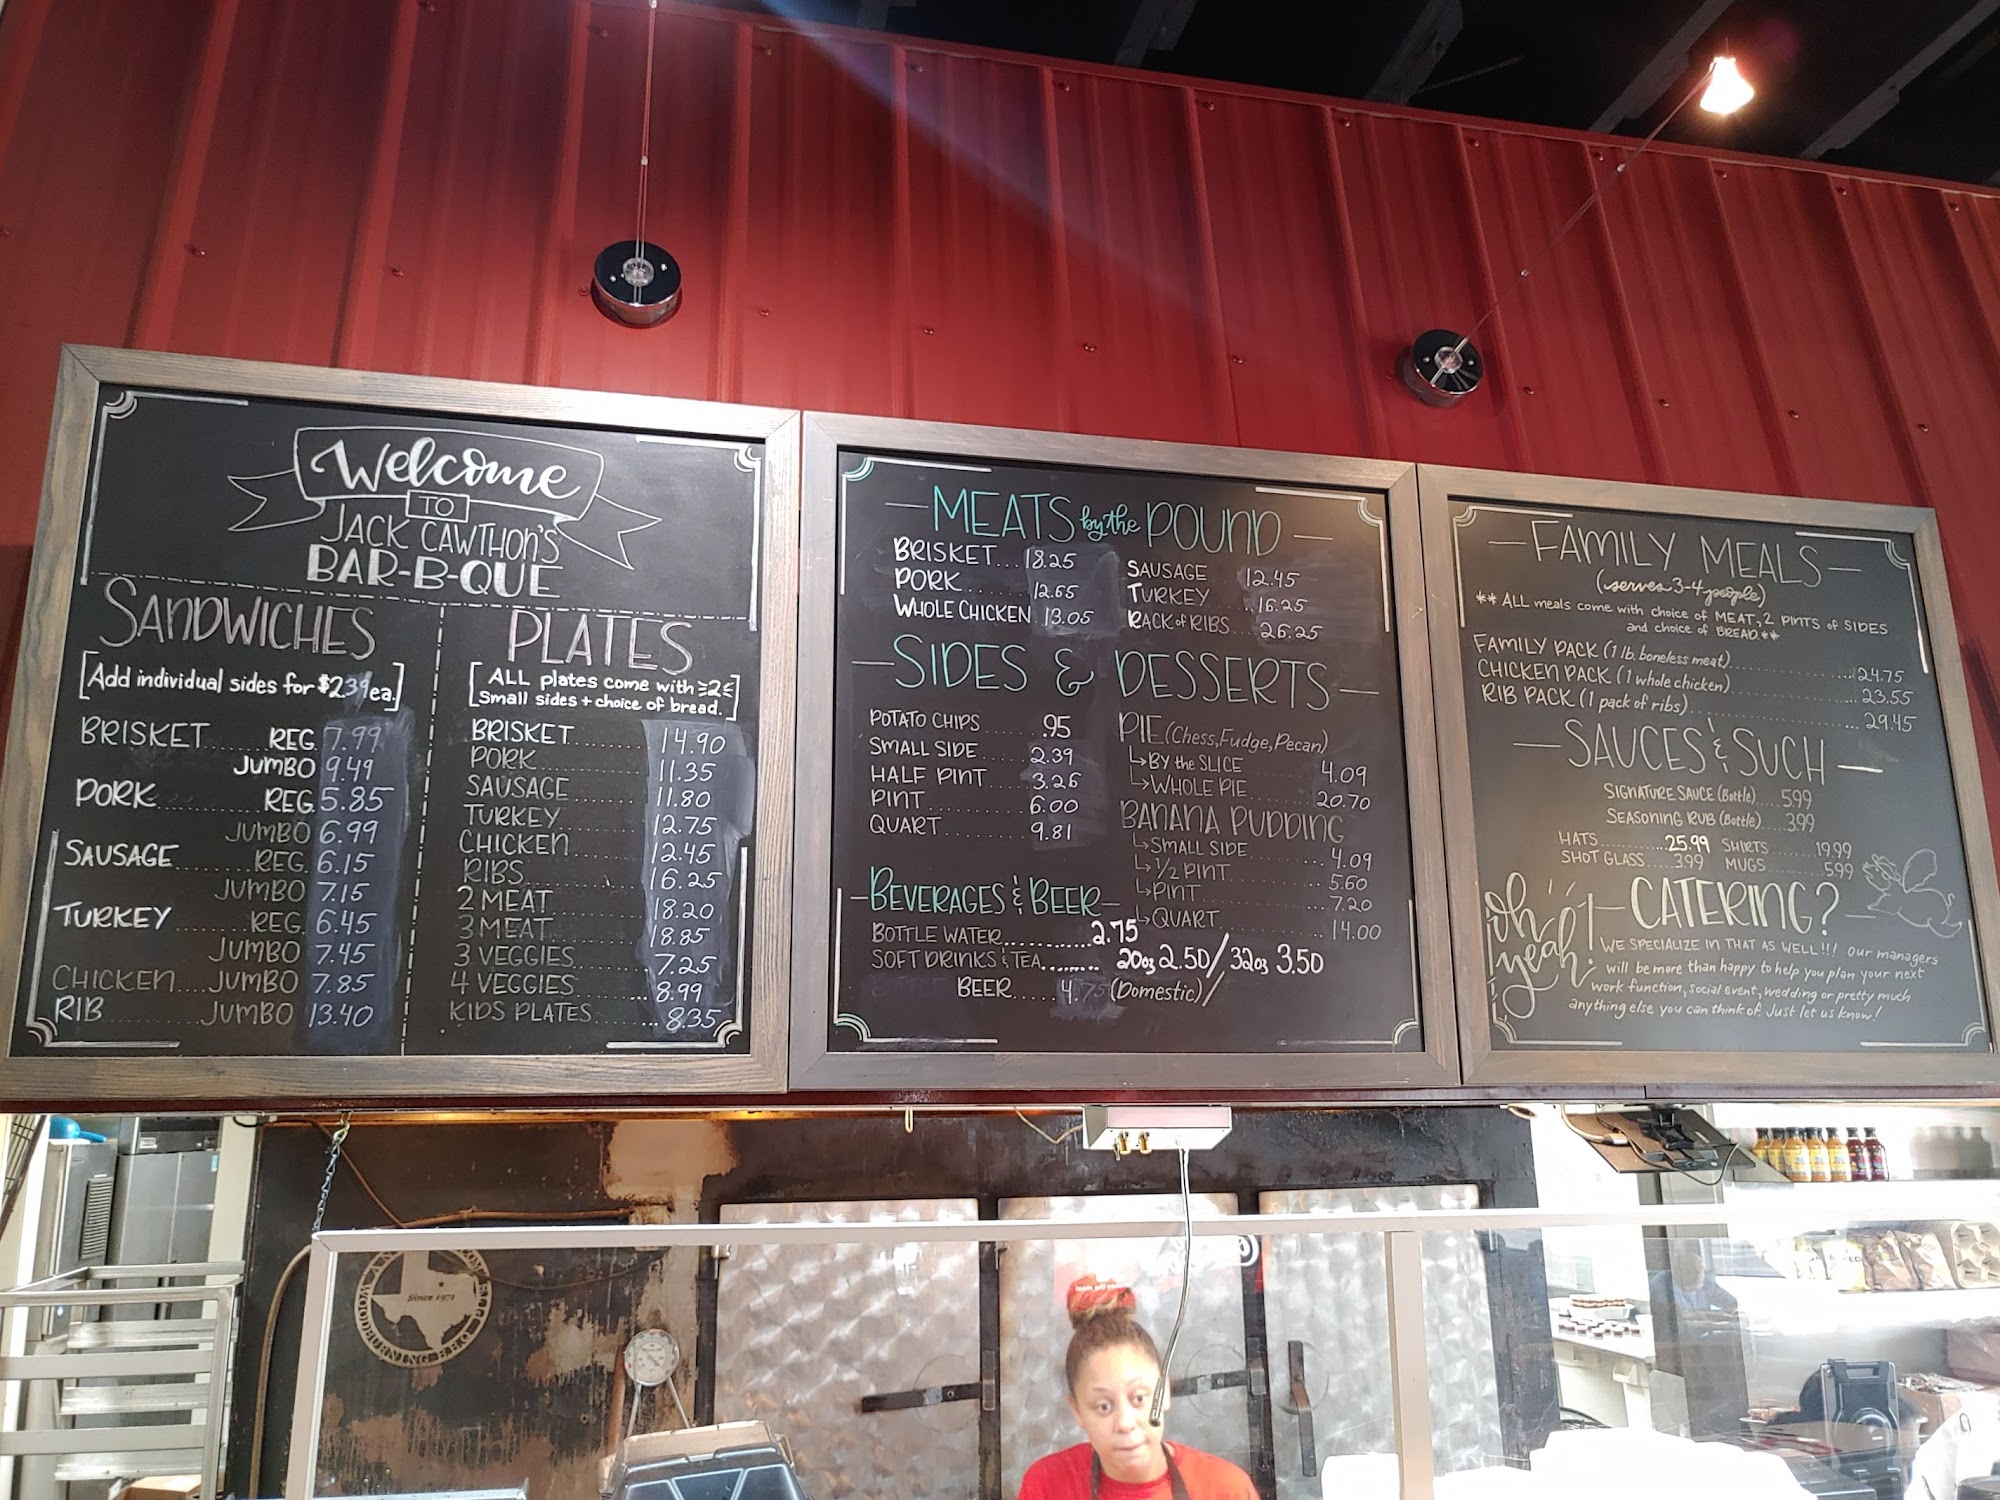 Welcome
TO
JACK CAWTHON'S
BAR-B-QUE
SANDWICHES
[Add individual sides for $2.39 ea.]
BRISKET......REG. 7.99
JUMBO 9.49
PORK......REG. 5.85
JUMBO 6.99
SAUSAGE......REG. 6.15
JUMBO 7.15
TURKEY......REG. 6.45
JUMBO 7.45
CHICKEN....JUMBO 7.85
RIB......JUMBO 13.40
PLATES
[ALL plates come with 2
Small sides + choice of bread.]
BRISKET......14.90
PORK......11.35
SAUSAGE......11.80
TURKEY......12.75
CHICKEN......12.45
RIBS......16.25
2 MEAT......18.20
3 MEAT......18.85
3 VEGGIES......7.25
4 VEGGIES......8.99
KIDS PLATES......8.35
MEATS by the POUND
BRISKET...18.25
PORK......12.65
WHOLE CHICKEN 13.05
SAUSAGE 12.45
TURKEY...16.25
RACK of RIBS...26.25
SIDES & DESSERTS
POTATO CHIPS .95
SMALL SIDE......2.39
HALF PINT......3.26
PINT......6.00
QUART......9.81
PIE (Chess, Fudge, Pecan)
↳BY the SLICE......4.09
↳WHOLE PIE......20.70
BANANA PUDDING
↳SMALL SIDE......4.09
↳1/2 PINT......5.60
↳PINT......7.20
↳QUART......14.00
BEVERAGES & BEER
BOTTLE WATER......2.75
SOFT DRINKS & TEA...... 20oz 2.50/32oz 3.50
BEER......4.75 (Domestic)
FAMILY MEALS
(serves 3-4 people)
** ALL meals come with choice of MEAT, 2 PINTS of SIDES
and choice of BREAD.**
FAMILY PACK (1 lb. boneless meat)......24.75
CHICKEN PACK (1 whole chicken)......23.55
RIB PACK (1 pack of ribs)......29.45
SAUCES & SUCH
SIGNATURE SAUCE (Bottle)....5.99
SEASONING RUB (Bottle)....3.99
HATS......25.99 SHIRTS......19.99
SHOT GLASS....3.99 MUGS......5.99
oh yeah!
CATERING?
WE SPECIALIZE IN THAT AS WELL!!! Our managers
will be more than happy to help you plan your next
work function, social event, wedding or pretty much
anything else you can think of. Just let us know!
Since 1971